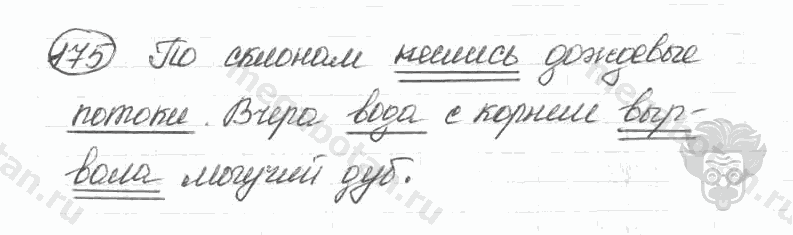 175 По склонам неслись дождевые
потоки. Вчера вода с корнем выр-
вала могучий дуб.
megabotan.ru